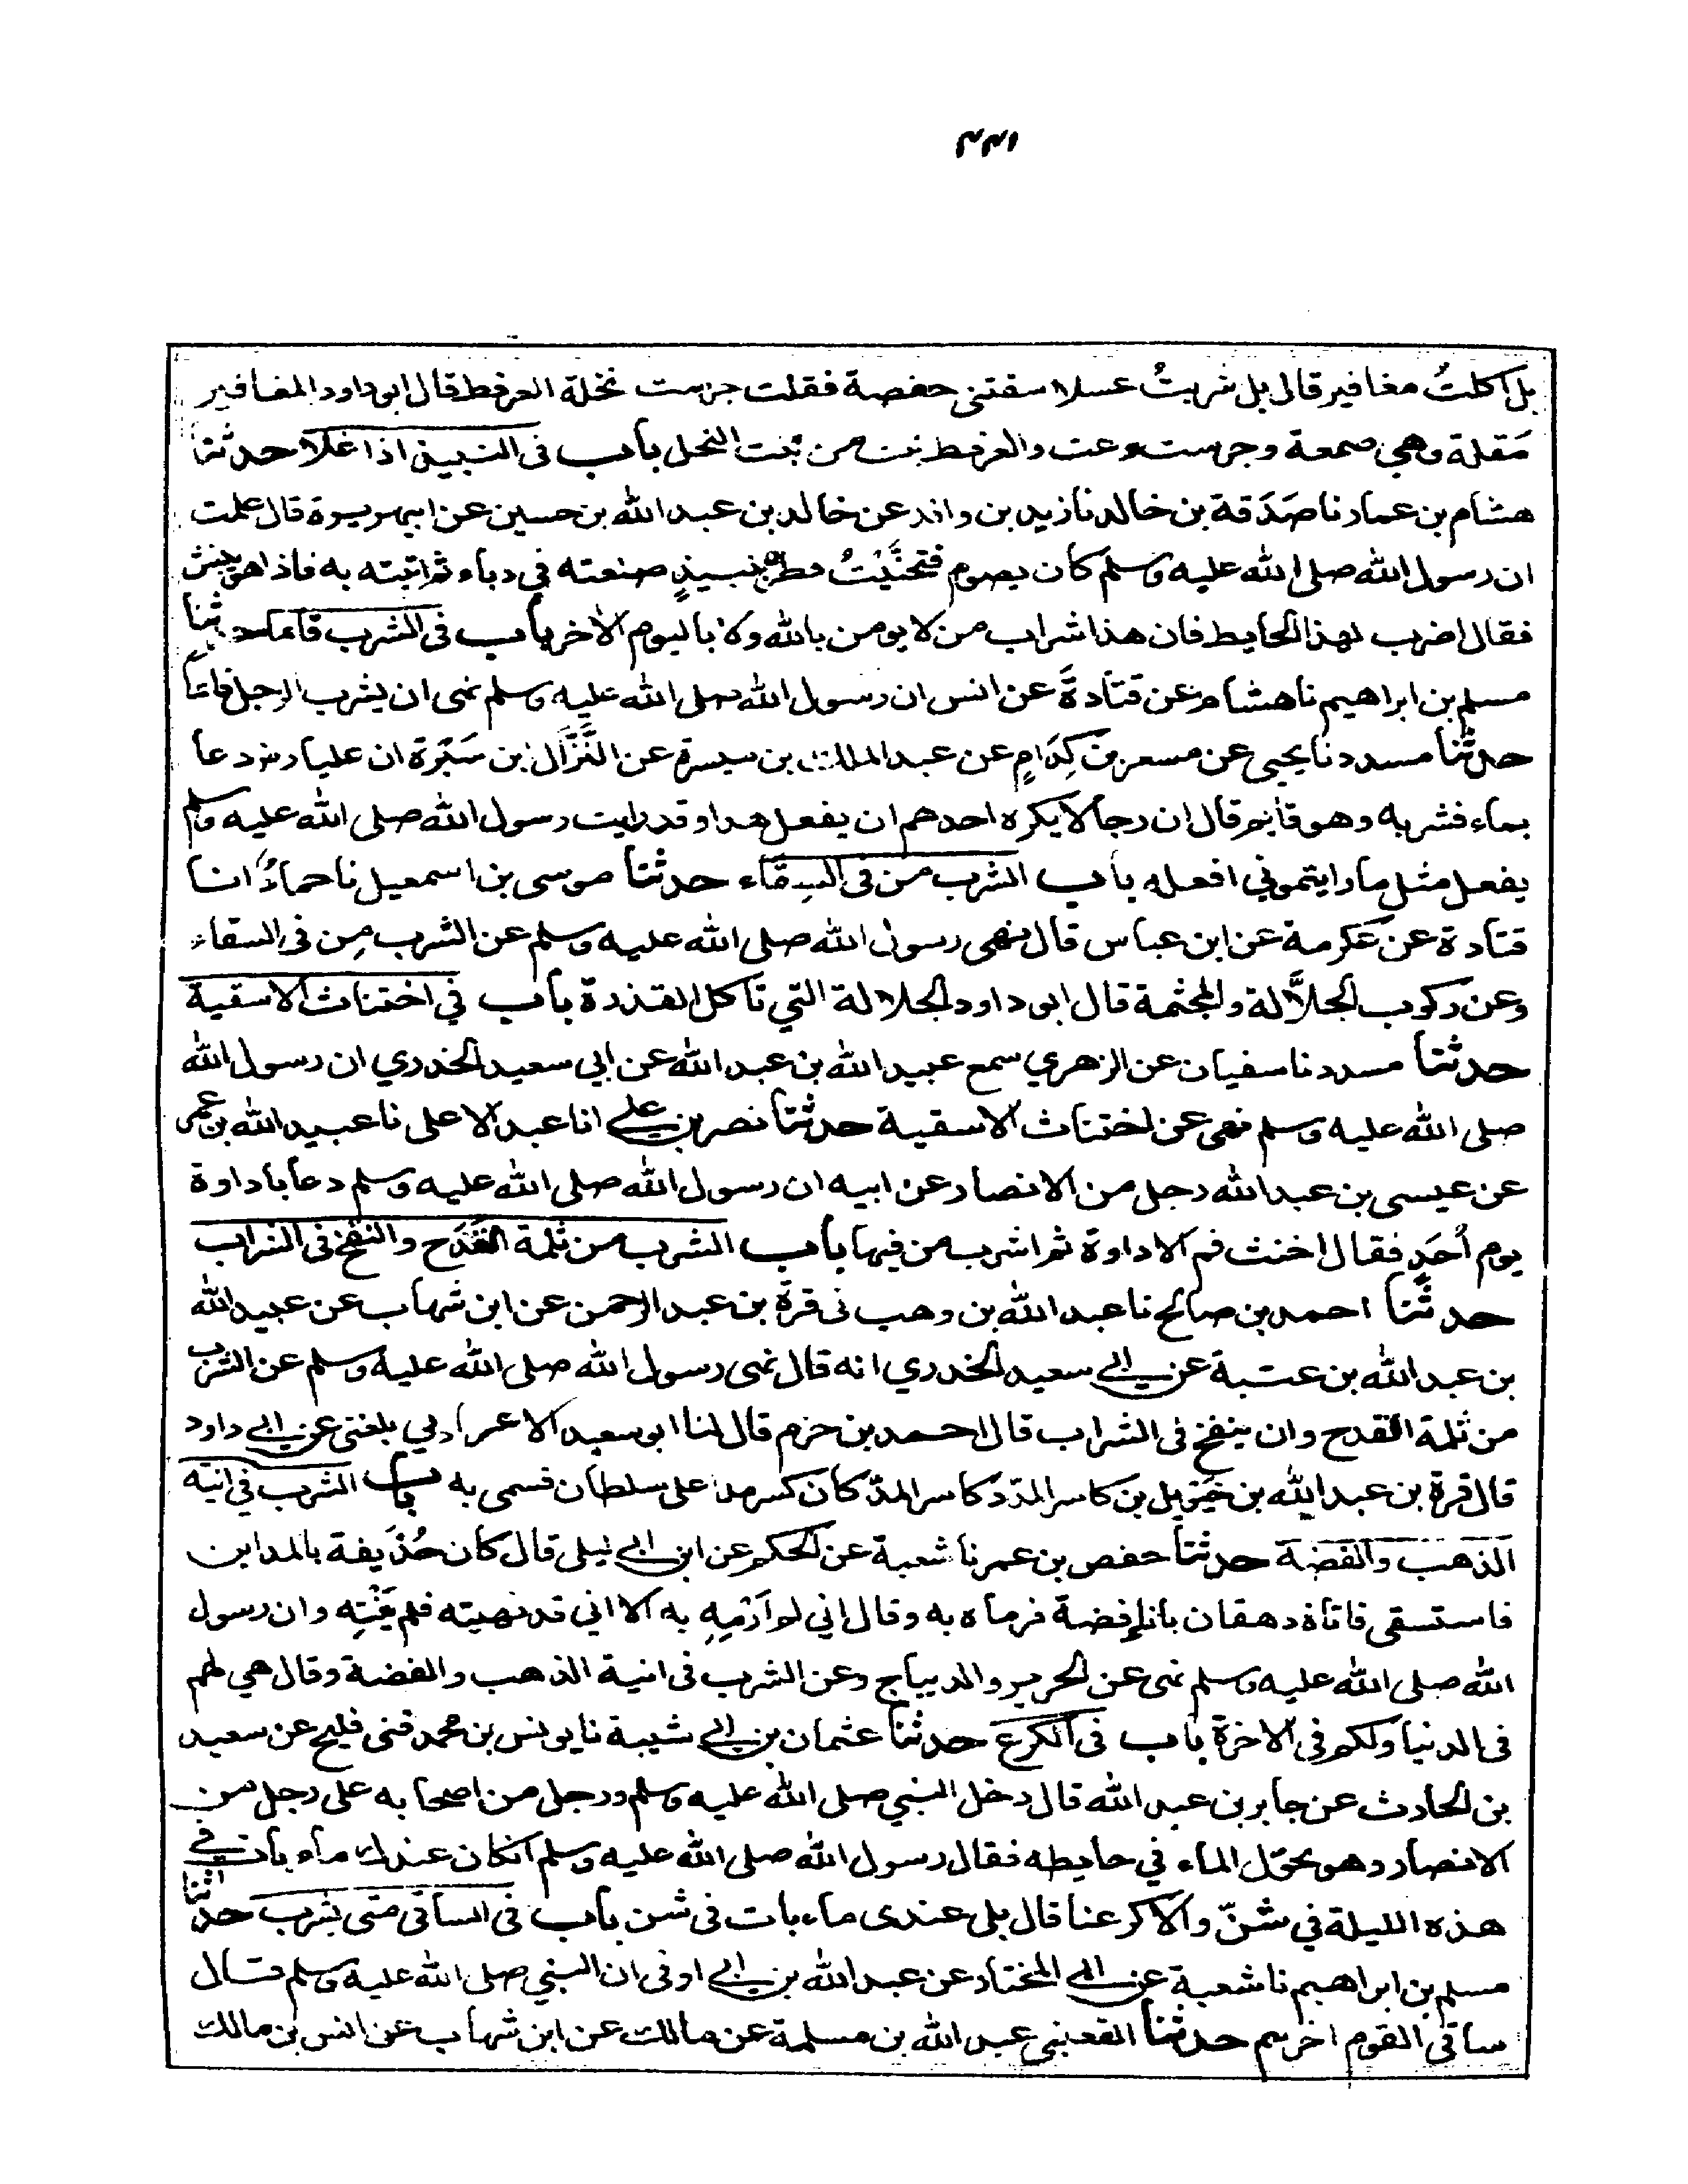 بل اكلتُ مغافير قال بل شربتُ عسلا سقتنى حفصة فقلت جرست نخلة العرفط قال ابو داود المغافير
مَقلة وهي صمعة وجرست رعت والعرفط نبت من نبت النحل باب فى النبيذ اذا غلا حدثنا
هشام بن عمار نا صَدَقة بن خالد نا زيد بن واقد عن خالد بن عبد الله بن حسين عن ابى هريرة قال علمت
ان رسول الله صلى الله عليه وسلم كان يصوم فتحيَّنْتُ فطره بنبيذٍ صنعته في دباء ثم اتيته به فاذا هو ينش
فقال اضرب بهذا الحايط فان هذا شراب من لا يومن بالله ولا باليوم الاخر باب فى الشرب قائما حدثنا
مسلم بن ابراهيم نا هشام عن قتادةَ عن انس ان رسول الله صلى الله عليه وسلم نهى ان يشرب الرجل قائما
حدثنا مسدد نا يحيى عن مسعر بن كِدَامٍ عن عبد الملك بن ميسرة عن النَّزَّال بن سَبْرَة ان عليا رضـ دعا
بماء فشربه وهو قايم قال ان رجالا يكره احدهم ان يفعل هذا وقد رايت رسول الله صلى الله عليه وسلم
يفعل مثل ما رايتموني افعله باب الشرب من فى السِقاء حدثنا موسى بن اسمعيل نا حمادٌ انا
قتادة عن عكرمة عن ابن عباس قال نهى رسول الله صلى الله عليه وسلم عن الشرب مِن فى السقاء
وعن ركوب الجلاَّلة والمجثمة قال ابو داود الجلالة التي تاكل القذرة باب في اختناث الاسقية
حدثنا مسدد نا سفيان عن الزهري سمع عبيد الله بن عبد الله عن ابي سعيد الخدري ان رسول الله
صلى الله عليه وسلم نهى عن اختناث الاسقية حدثنا نصر بن علي انا عبد الاعلى نا عبيد الله بن عمر
عن عيسى بن عبد الله رجل من الانصار عن ابيه ان رسول الله صلى الله عليه وسلم دعا باداوة
يوم اُحَدٍ فقال اخنث فم الاداوة ثم اشرب من فيها باب الشرب من ثلمة القَدَح والنفخ فى الشراب
حدثنا احمد بن صالح نا عبد الله بن وهب نى قرة بن عبد الرحمن عن ابن شهاب عن عبيد الله
بن عبد الله بن عتبة عن ابي سعيد الخدري انه قال نهى رسول الله صلى الله عليه وسلم عن الشرب
من ثلمة القدح وان ينفخ فى الشراب قال احمد بن حزم قال لنا ابو سعيد الاعرابي بلغنى عن ابي داود
قال قرة بن عبد الله بن حَيْويل بن كاسر المدّ كاسر المدّ كان كسر مدا على سلطان فسمى به باب الشرب في انية
الذهب والفضة حدثنا حفص بن عمر نا شعبة عن الحكم عن ابن ابي ليلى قال كان حُذَيفة بالمداين
فاستسقى فاتاة دهقان باناء فضة فرماه به وقال اني لم اَرْمِهِ به الا اني قد نهيته فلم يَنْتِه وان رسول
الله صلى الله عليه وسلم نهى عن الحرير والديباج وعن الشرب فى انية الذهب والفضة وقال هي لهم
فى الدنيا ولكم فى الاخرة باب فى الكرع حدثنا عثمان بن ابي شيبة نا يونس بن محمد ثنى فليح عن سعيد
بن الحارث عن جابر بن عبد الله قال دخل النبي صلى الله عليه وسلم ورجل من اصحابه على رجل من
الانصار وهو يحوّل الماء في حايطه فقال رسول الله صلى الله عليه وسلم ان كان عندك ماء بات في
هذه الليلة في شنّ والا كرعنا قال بلى عندى ماء بات فى شن باب فى الساقى متى يشرب حدثنا
مسلم بن ابراهيم نا شعبة عن ابي المختار عن عبد الله بن ابي اوفى ان النبي صلى الله عليه وسلم قال
ساقى القوم اخرهم حدثنا القعنبى عبد الله بن مسلمة عن مالك عن ابن شهاب عن انس بن مالك